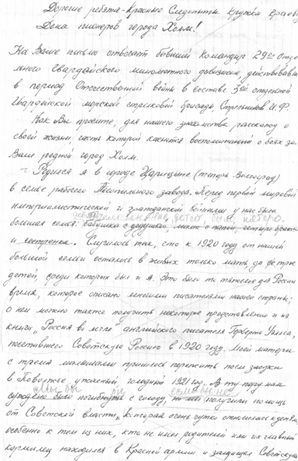 Дорогие ребята-Красные Следопыты кружка краеве
Дома пионеров города Холм!
На Ваше письмо отвечает бывший Командир 29го отде
льного Гвардейского минометного дивизиона, действовавш
в период Отечественной войны в составе 3ей отдельной
Гвардейской морской стрелковой бригады Сергиенков И.Ф.
Как Вы просите, для нашего знакомства расскажу о
своей жизни, часть которой касается воспоминаний о боях за
Ваш родной город Холм.
Родился я в городе Царицыне (теперь Волгоград)
в семье рабочего завода. Перед первой мировой
империалистической и гражданской войнами у нас была
большая семья: бабушка с дедушкой, мать с папой, четыре брата
и сестренка. Случилось так, что к 1920 году от нашей
большой семьи остались в живых только мать да трое
детей, среди которых был и я. Это было то тяжелое для России
время, которое описано многими писателями нашей страны,
о нем можно также получить некоторое представление и из
книги „Россия во мгле" английского писателя Герберта Уэллса,
посетившего Советскую Россию в 1920 году. Моей матери
с тремя малышами пришлось пережить после разруху
в Поволжье ужасный голодный 1921 год. А ту пору нам
суждено было погибнуть с голоду, но мы получили помощь
от Советской власти, которая очень чутко относилась к детям,
особенно к тем из них, кто не имел родителей или их главный
кормилец находился в Красной армии и защищал Советскую